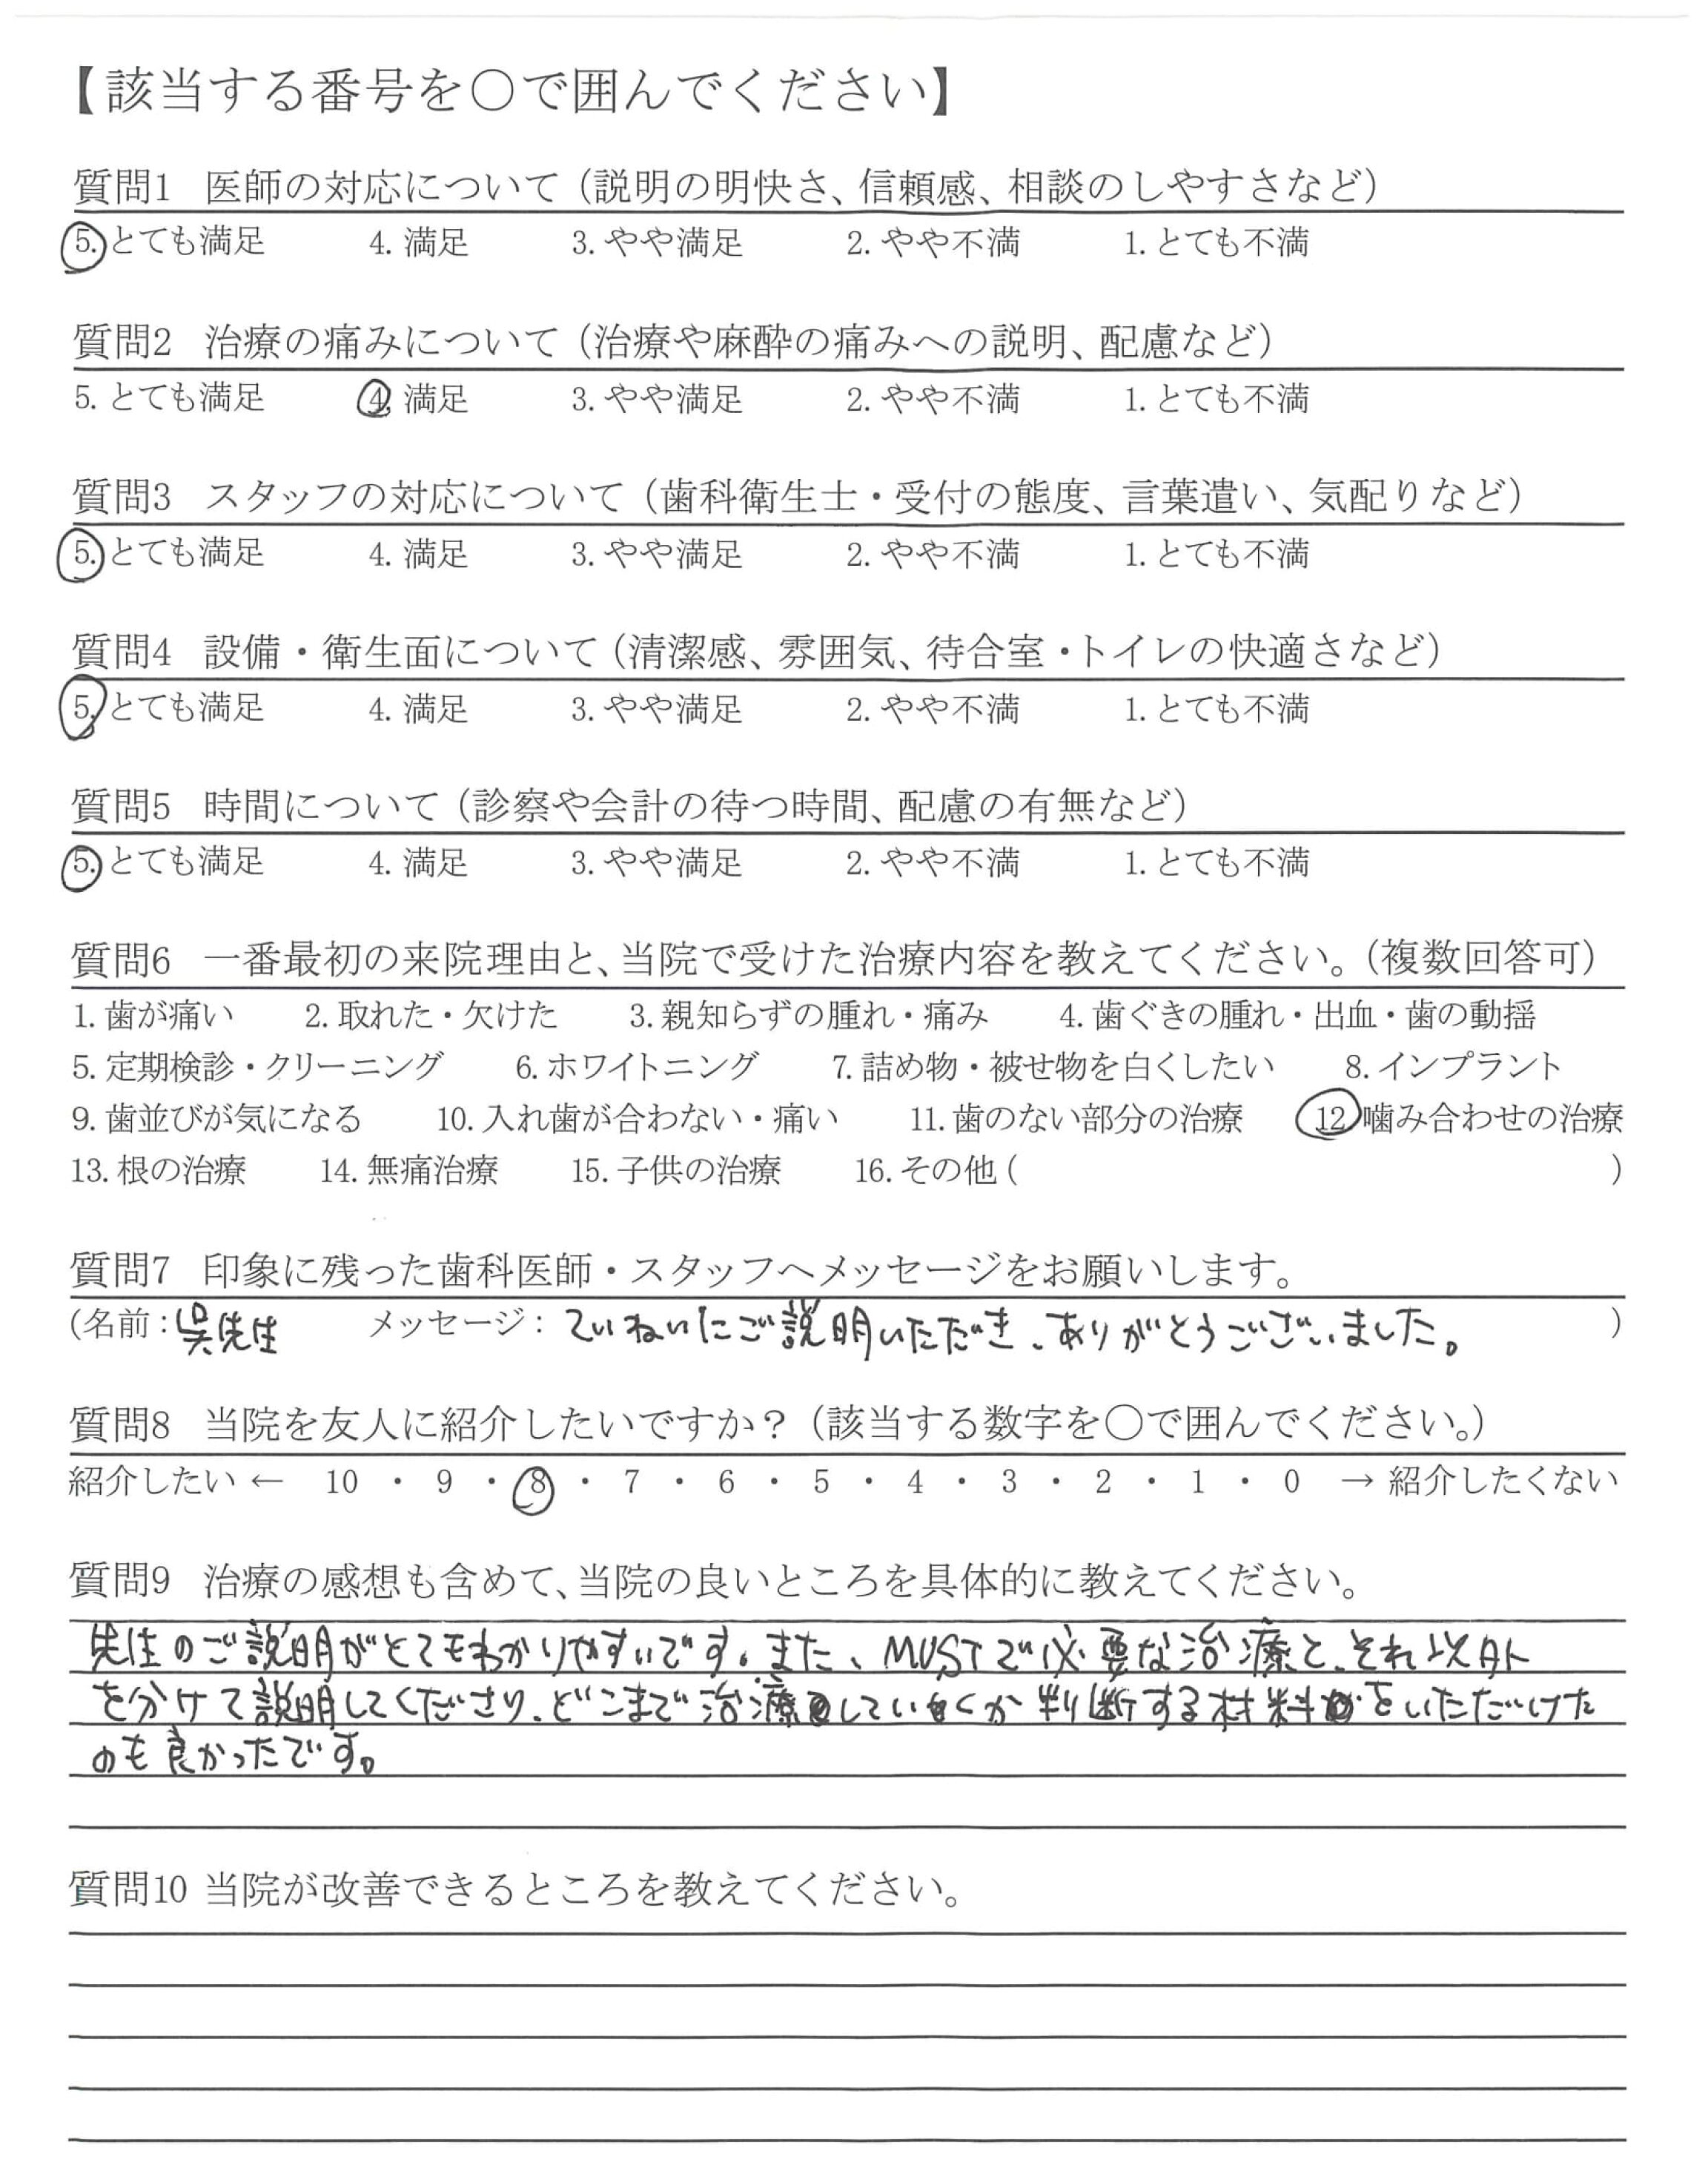 【該当する番号を○で囲んでください】
質問1 医師の対応について（説明の明快さ、信頼感、相談のしやすさなど）
5. とても満足 4. 満足 3. やや満足 2. やや不満 1. とても不満
質問2 治療の痛みについて（治療や麻酔の痛みへの説明、配慮など）
5. とても満足 4. 満足 3. やや満足 2. やや不満 1. とても不満
質問3 スタッフの対応について（歯科衛生士・受付の態度、言葉遣い、気配りなど）
5. とても満足 4. 満足 3. やや満足 2. やや不満 1. とても不満
質問4 設備・衛生面について（清潔感、雰囲気、待合室・トイレの快適さなど）
5. とても満足 4. 満足 3. やや満足 2. やや不満 1. とても不満
質問5 時間について（診察や会計の待つ時間、配慮の有無など）
5. とても満足 4. 満足 3. やや満足 2. やや不満 1. とても不満
質問6 一番最初の来院理由と、当院で受けた治療内容を教えてください。（複数回答可）
1. 歯が痛い 2. 取れた・欠けた 3. 親知らずの腫れ・痛み 4. 歯ぐきの腫れ・出血・歯の動揺
5. 定期検診・クリーニング 6. ホワイトニング 7. 詰め物・被せ物を白くしたい 8. インプラント
9. 歯並びが気になる 10. 入れ歯が合わない・痛い 11. 歯のない部分の治療 12 噛み合わせの治療
13. 根の治療 14. 無痛治療 15. 子供の治療 16. その他 ( )
質問7 印象に残った歯科医師・スタッフへメッセージをお願いします。
(名前：呉先生 メッセージ：ていねいにご説明いただき、ありがとうございました。 )
質問8 当院を友人に紹介したいですか？（該当する数字を○で囲んでください。）
紹介したい ← 10 ・ 9 ・ 8 ・ 7 ・ 6 ・ 5 ・ 4 ・ 3 ・ 2 ・ 1 ・ 0 → 紹介したくない
質問9 治療の感想も含めて、当院の良いところを具体的に教えてください。
先生のご説明がとてもわかりやすいです。また、MUSTで必要な治療と、それ以外
を分けて説明してくださり、どこまで治療していくか判断する材料をいただけた
のも良かったです。
質問10 当院が改善できるところを教えてください。